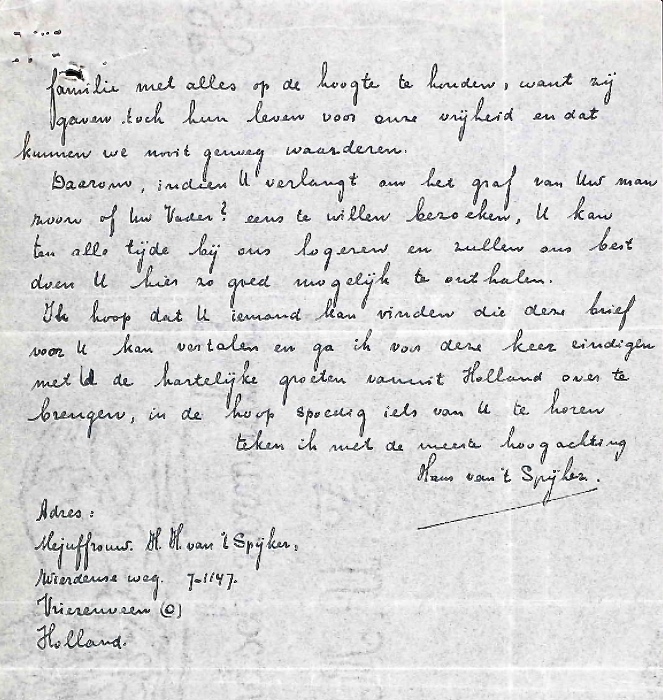 familie met alles op de hoogte te houden, want zij
gaven toch hun leven voor onze vrijheid en dat
kunnen we nooit genoeg waarderen.
Daarom, indien U verlangt om het graf van Uw man
zoon of Uw Vader? eens te willen bezoeken, U kan
ten alle tijde bij ons logeren en zullen ons best
doen U hier zo goed mogelijk te onthalen.
Ik hoop dat U iemand kan vinden die deze brief
voor U kan vertalen en ga ik voor deze keer eindigen
met U de hartelijke groeten vanuit Holland over te
brengen, in de hoop spoedig iets van U te horen
teken ik met de meeste hoogachting
Hans van 't Spijker.
Adres:
Mejuffrouw. H. H. van 't Spijker,
Wierdense weg. 7-1147.
Vriezenveen (O)
Holland.